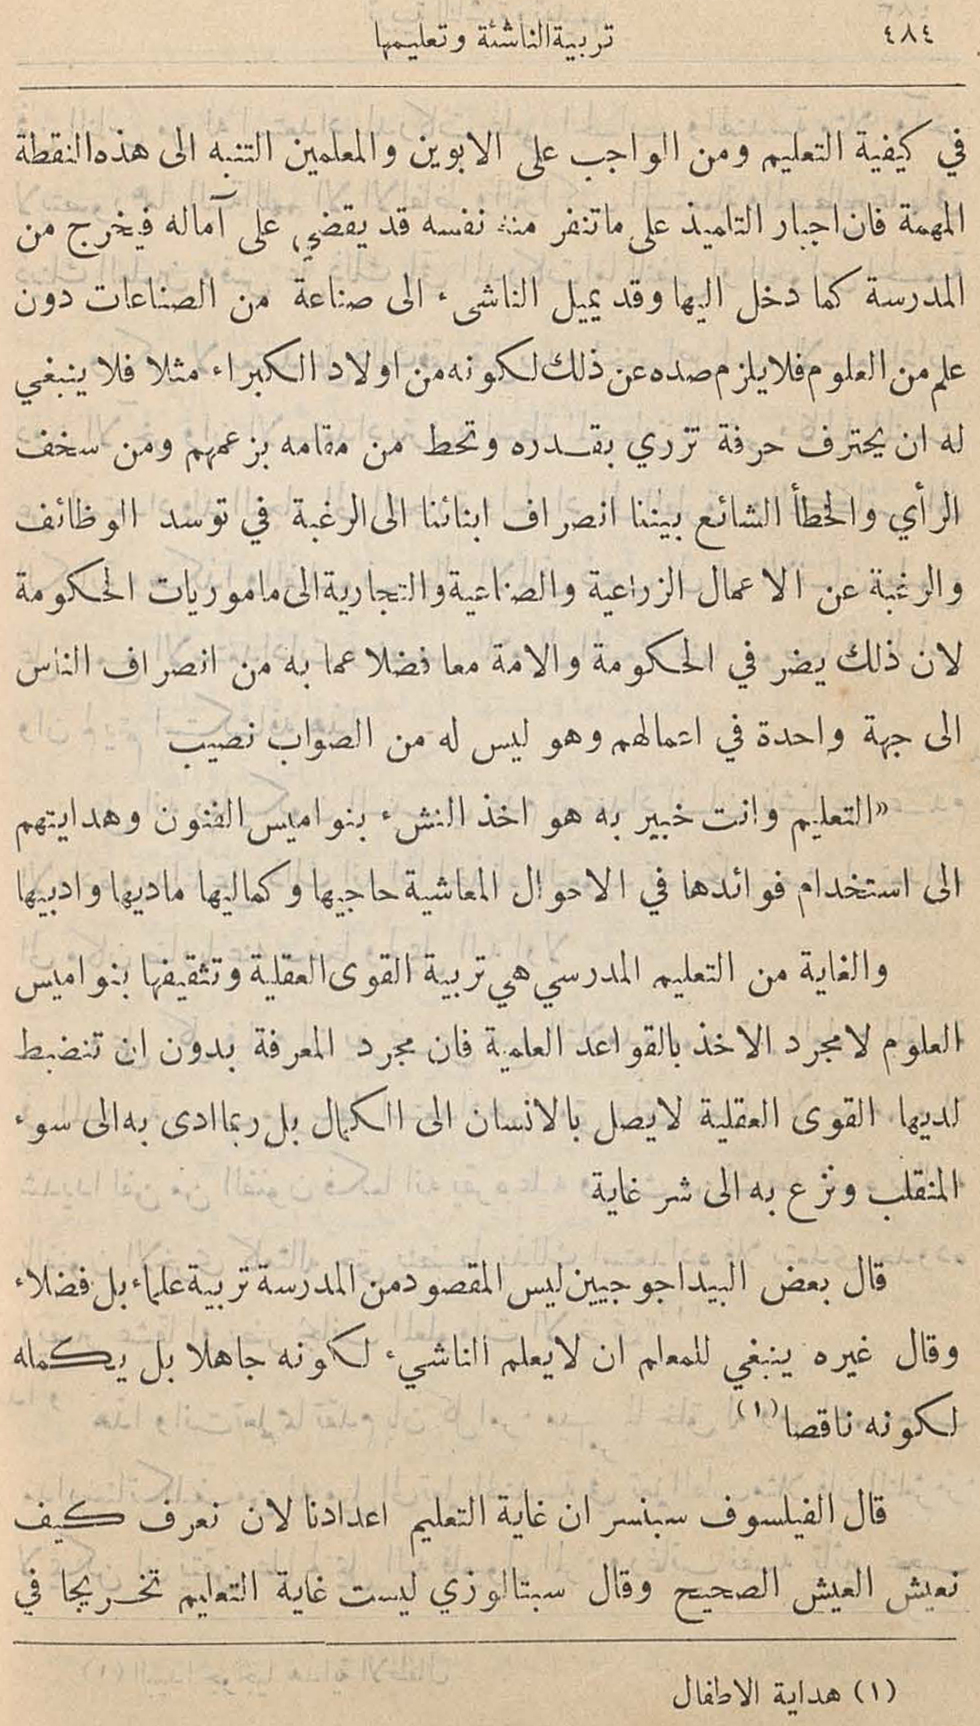 ٤٨٤
تربية الناشئة وتعليمها
في كيفية التعليم ومن الواجب على الابوين والمعلمين التنبه الى هذه النقطة
المهمة فان اجبار التلميذ على ماتنفر منه نفسه قد يقضي على آماله فيخرج من
المدرسة كما دخل اليها وقد يميل الناشىء الى صناعة من الصناعات دون
علم من العلوم فلا يلزم صده عن ذلك لكونه من اولاد الكبراء مثلا فلا ينبغي
له ان يحترف حرفة تزري بقدره وتحط من مقامه بزعمهم ومن سخف
الرأي والخطأ الشائع بيننا انصراف ابنائنا الى الرغبة في توسد الوظائف
والرغبة عن الاعمال الزراعية والصناعية والتجارية الى ماموريات الحكومة
لان ذلك يضر في الحكومة والامة معا فضلا عما به من انصراف الناس
الى جهة واحدة في اعمالهم وهو ليس له من الصواب نصيب
«التعليم وانت خبير به هو اخذ النشء بنواميس الفنون وهدايتهم
الى استخدام فوائدها في الاحوال المعاشية حاجيها وكماليها ماديها وادبيها
والغاية من التعليم المدرسي هي تربية القوى العقلية وتثقيفها بنواميس
العلوم لا مجرد الاخذ بالقواعد العلمية فان مجرد المعرفة بدون ان تنضبط
لديها القوى العقلية لا يصل بالانسان الى الكمال بل ربما ادى به الى سوء
المنقلب ونزع به الى شر غاية
قال بعض البيداجوجيين ليس المقصود من المدرسة تربية علماء بل فضلاء
وقال غيره ينبغي للمعلم ان لا يعلم الناشيء لكونه جاهلا بل يكمله
لكونه ناقصا (١)
قال الفيلسوف سبنسر ان غاية التعليم اعدادنا لان نعرف كيف
نعيش العيش الصحيح وقال سبتالوزي ليست غاية التعليم تخريجا في
(١) هداية الاطفال